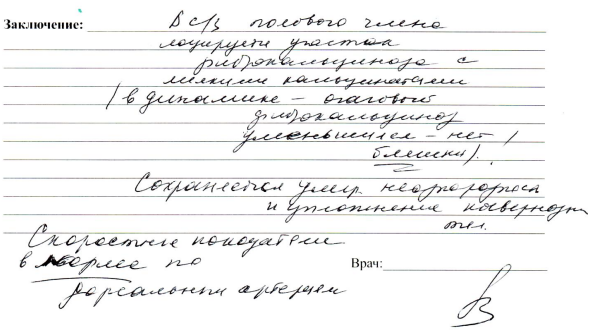 Заключение: В с/з полового члена
лоцируется участок
фиброкальциноза с
мелкими кальцинатами
(в динамике – очаговый
фиброкальциноз
уменьшился – нет
бляшки).
Сохраняется умер. неоднородность
и уплотнение кавернозн
тел.
Скоростные показатели
в норме по
Врач:
дорсальным артериям